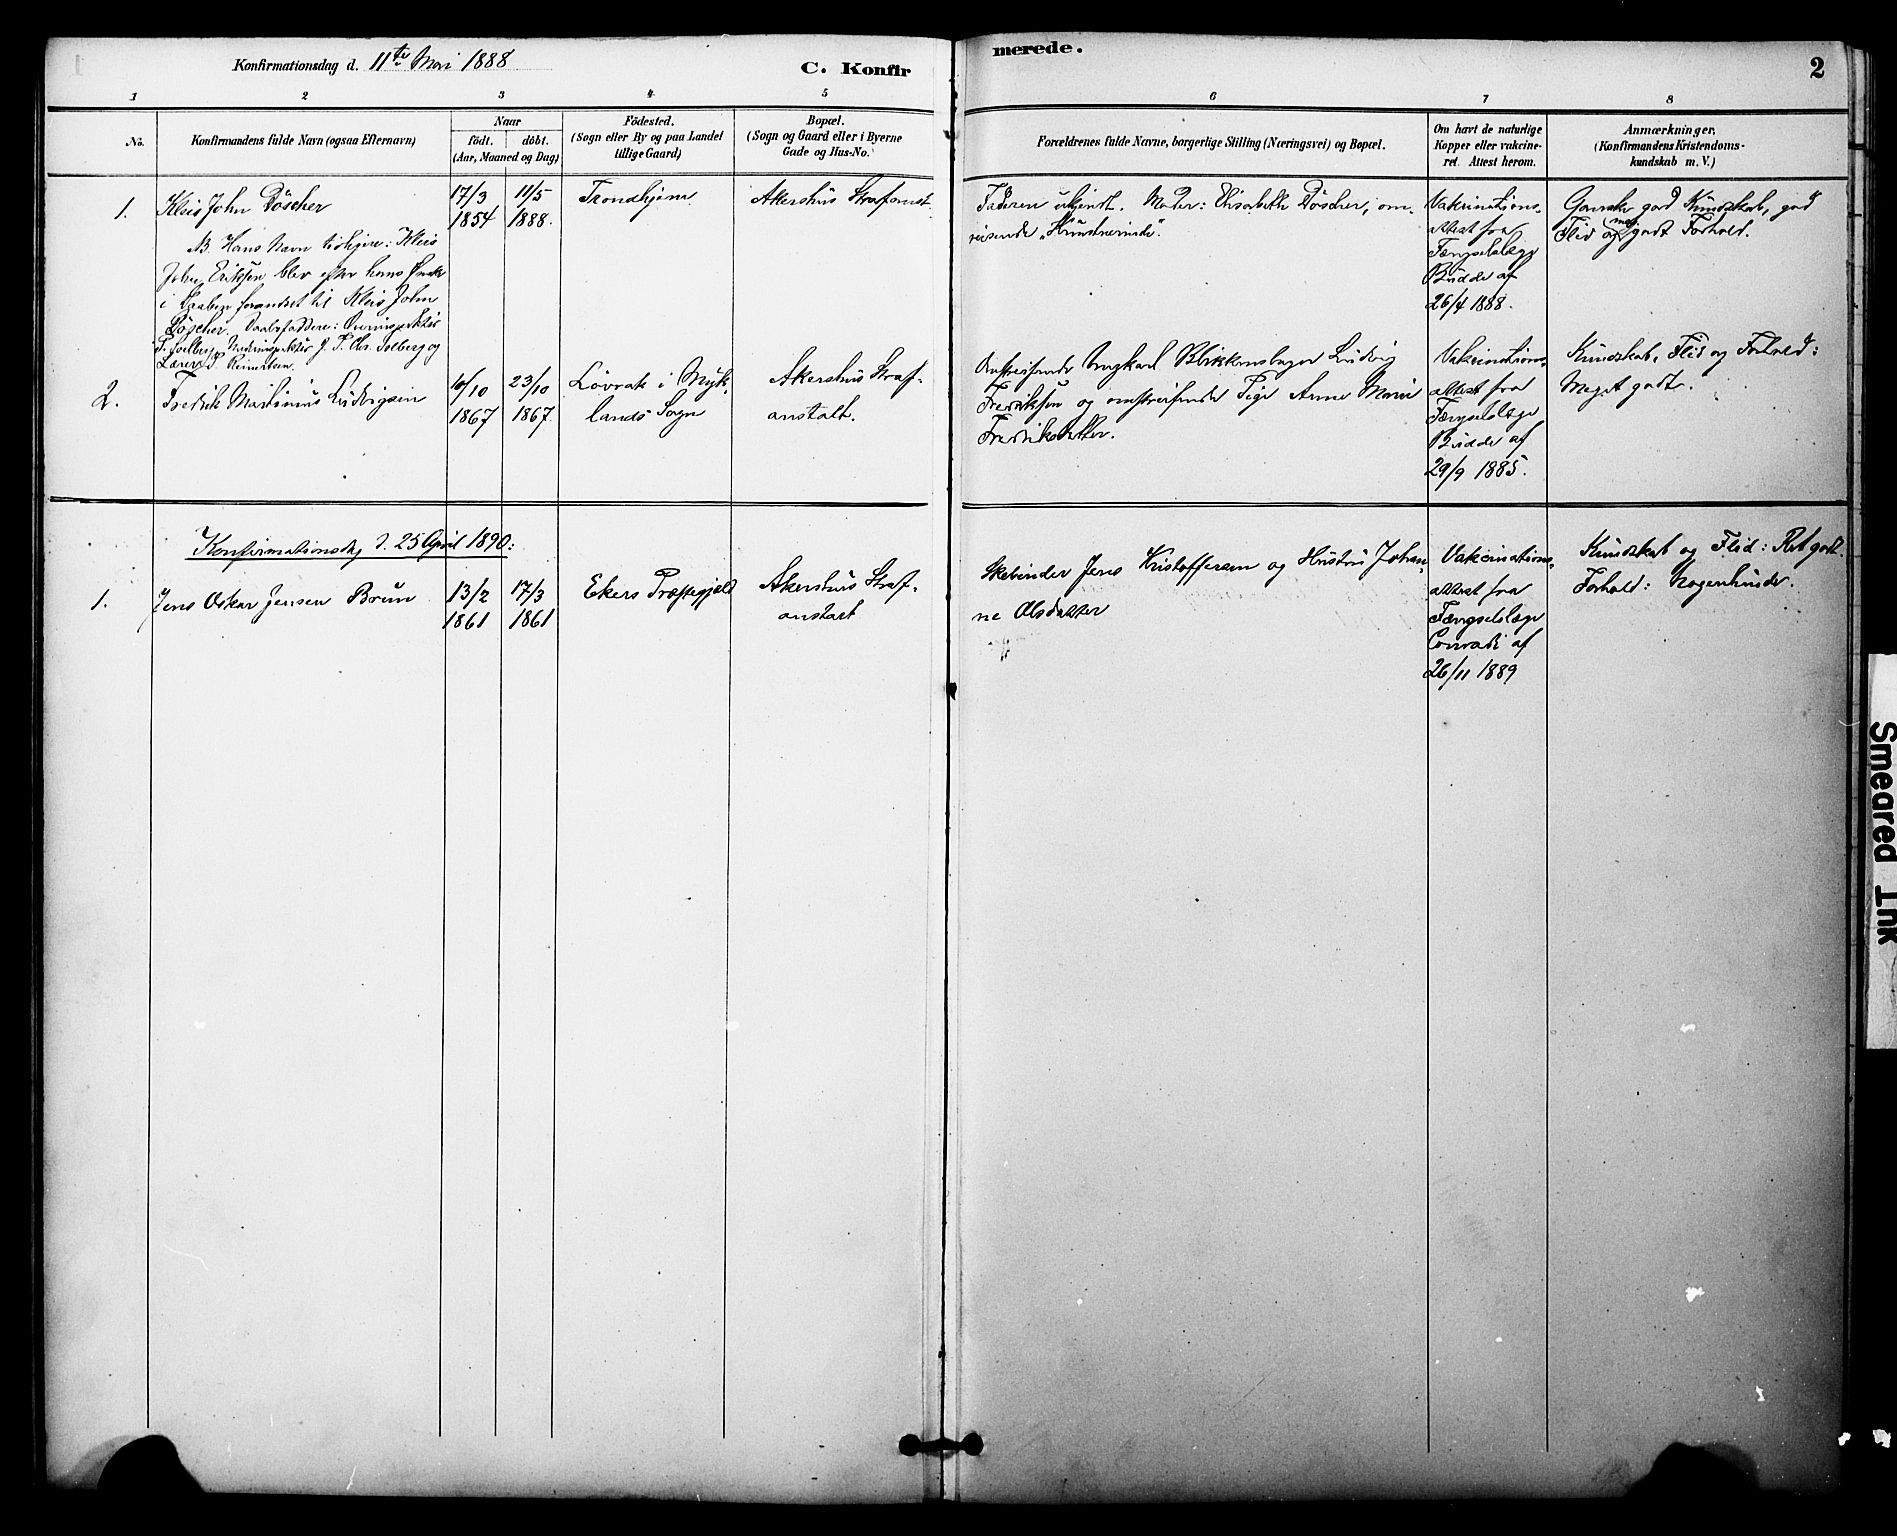 Konfirmationsdag d. 11te Mai 1888
C. Konfir
merede.
2
1 2 3 4 5 6 7 8
No.
Konfirmandens fulde Navn (ogsaa Efternavn)
Naar
födt. döbt.
(Aar, Maaned og Dag)
Födested.
(Sogn eller By og paa Landet
tillige Gaard)
Bopæl.
(Sogn og Gaard eller i Byerne
Gade og Hus-No.
Forældrenes fulde Navne, borgerlige Stilling (Næringsvei) og Bopæl.
Om havt de naturlige
Kopper eller vakcine-
ret. Attest herom.
Anmærkninger.
(Konfirmandens Kristendoms-
kundskab m. V.)
1.
Kleis John Döscher
NB. Hans Navn tidligere: Kleis
Johan Eriksen blev efter hans Ønske
i Daaben forandret til Kleis John
Döscher. Daabsfaddere: Overinspektør
T. Solberg, Underinspektør J. T. Chr. Solberg og
Lærer Reinertsen.
17/3
1854
11/5
1888.
Trondhjem
Akershus Strafanst.
Faderen ukjendt. Moder: Elisabeth Döscher, om-
reisende "Kunstnerinde".
Vakcinations-
attest fra
Fængselslæge
Budde af
26/4 1888.
Ganske god Kundskab, god
Flid og meg godt Forhold.
2.
Fredrik Martinius Ludvigsen
10/10
1867
23/10
1867.
Lövrak i Myk-
lands Sogn
Akershus Straf-
anstalt.
Omstreifende Ungkarl Blikkenslager Ludvig
Fredriksen og omstreifende Pige Anne Marie
Fredriksdatter.
Vakcinations-
attest fra
Fængselslæge
Budde af
29/9 1885.
Kundskab, Flid og Forhold:
Meget godt.
Konfirmationsdag d. 25 April 1890:
1.
Jens Oskar Jensen Brun
13/2
1861
17/3
1861
Ekers Præstegjæld
Akershus Straf-
anstalt
Skebinder Jens Kristoffersen og Hustru Johan-
ne Olsdatter
Vakcinations-
attest fra
Fængselslæge
Conradi af
26/11 1889
Kundskab og Flid: Ret godt.
Forhold: Nogenlunde.
Smeared Ink